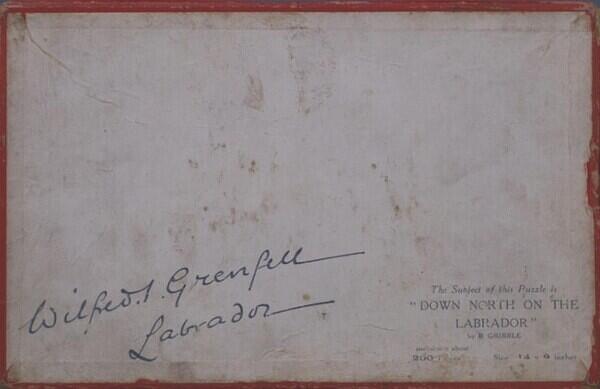 Wilfred. T. Grenfell
Labrador
The Subject of this Puzzle is
"DOWN NORTH ON THE
LABRADOR"
by B GRIBBLE
about
200 Size 14 x 9 inches